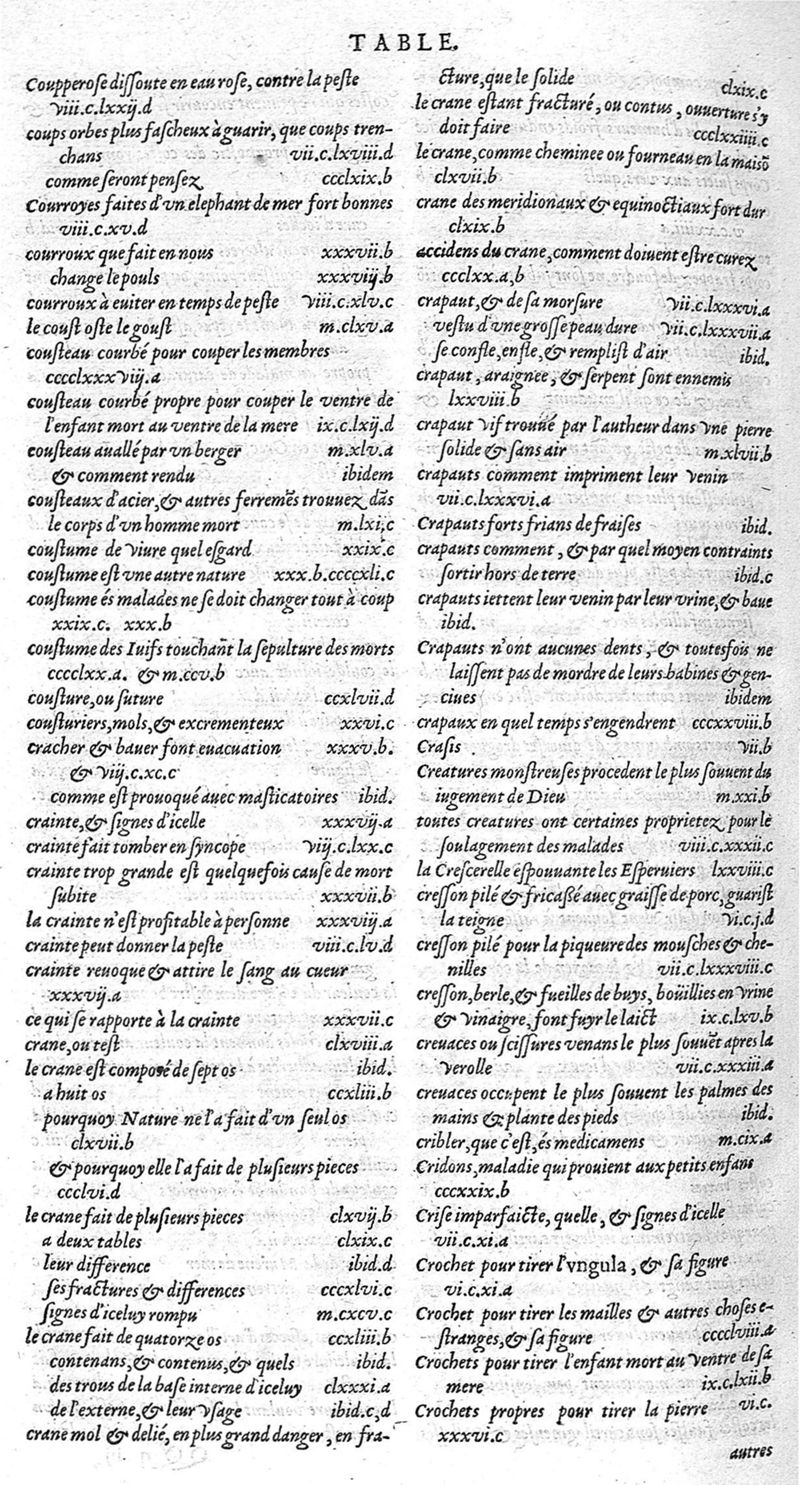 TABLE.
Coupperoſe diſſoute en eau roſe, contre la peſte
viii.c.lxxij.d
coups orbes plus faſcheux à guarir, que coups tren-
chans vii.c.lxviii.d
comme ſeront penſez ccclxix.b
Courroyes faites d'vn elephant de mer fort bonnes
viii.c.xv.d
courroux que fait en nous xxxvii.b
change le pouls xxxviij.b
courroux à euiter en temps de peſte viii.c.xlv.c
le couſt oſte le gouſt m.clxv.a
couſteau courbé pour couper les membres
cccclxxxviij.a
couſteau courbé propre pour couper le ventre de
l'enfant mort au ventre de la mere ix.c.lxij.d
couſteau auallé par vn berger m.xlv.a
& comment rendu ibidem
couſteaux d'acier, & autres ferremēs trouuez dās
le corps d'vn homme mort m.lxi,c
couſtume de viure quel eſgard xxix.c
couſtume eſt vne autre nature xxx.b.ccccxli.c
couſtume és malades ne ſe doit changer tout à coup
xxix.c. xxx.b
couſtume des Iuifs touchant la ſepulture des morts
cccclxx.a. & m.ccv.b
couſture, ou ſuture ccxlvii.d
couſturiers, mols, & excrementeux xxvi.c
cracher & bauer font euacuation xxxv.b.
& viij.c.xc.c
comme eſt prouoqué auec maſticatoires ibid.
crainte, & ſignes d'icelle xxxvij.a
crainte fait tomber en ſyncope viij.c.lxx.c
crainte trop grande eſt quelquefois cauſe de mort
ſubite xxxvii.b
la crainte n'eſt profitable à perſonne xxxvij.a
crainte peut donner la peſte viii.c.lv.d
crainte reuoque & attire le ſang au cueur
xxxvij.a
ce qui ſe rapporte à la crainte xxxvii.c
crane, ou teſt clxviii.a
le crane eſt compoſé de ſept os ibid.
a huit os ccxliii.b
pourquoy Nature ne l'a fait d'vn ſeul os
clxvii.b
& pourquoy elle l'a fait de pluſieurs pieces
ccclvi.d
le crane fait de pluſieurs pieces clxvij.b
a deux tables clxix.c
leur difference ibid.d
ſes fractures & differences cccxlvi.c
ſignes d'iceluy rompu m.cxcv.c
le crane fait de quatorze os ccxliii.b
contenans, & contenus, & quels ibid.
des trous de la baſe interne d'iceluy clxxxi.a
de l'externe, & leur vſage ibid.c,d
crane mol & delié, en plus grand danger, en fra-
cture, que le ſolide clxix.c
le crane eſtant fracturé, ou contus, ouuerture s'y
doit faire ccclxxiiii.c
le crane, comme cheminee ou fourneau en la maisō
clxvii.b
crane des meridionaux & equinoctiaux fort dur
clxix.b
accidens du crane, comment doiuent eſtre curez
ccclxx.a,b
crapaut, & de ſa morſure vii.c.lxxxvi.a
veſtu d'vne groſſe peau dure vii.c.lxxxvii.a
ſe confle, enfle, & rempliſt d'air ibid.
crapaut, araignee, & ſerpent ſont ennemis
lxxviii.b
crapaut vif trouué par l'autheur dans vne pierre
ſolide & ſans air m.xlvii.b
crapauts comment impriment leur venin
vii.c.lxxxvi.a
Crapauts forts frians de fraiſes ibid.
crapauts comment, & par quel moyen contraints
ſortir hors de terre ibid.c
crapauts iettent leur venin par leur vrine, & baue
ibid.
Crapauts n'ont aucunes dents, & toutesfois ne
laiſſent pas de mordre de leurs babines & gen-
ciues ibidem
crapaux en quel temps s'engendrent cccxxviii.b
Craſis vii.b
Creatures monſtreuſes procedent le plus ſouuent du
iugement de Dieu m.xxi.b
toutes creatures ont certaines proprietez pour le
ſoulagement des malades viii.c.xxxii.c
la Creſcerelle eſpouuante les Eſperuiers lxxviii.c
creſſon pilé & fricaßé auec graiſſe de porc, guariſt
la teigne vi.c.j.d
creſſon pilé pour la piqueure des mouſches & che-
nilles vii.c.lxxxviii.c
creſſon, berle, & fueilles de buys, boüillies en vrine
& vinaigre, font fuyr le laict ix.c.lxv.b
creuaces ou ſciſſures venans le plus ſouuēt apres la
verolle vii.c.xxxiii.a
creuaces occupent le plus ſouuent les palmes des
mains & plante des pieds ibid.
cribler, que c'eſt, és medicamens m.cix.a
Cridons, maladie qui prouient aux petits enfans
cccxxix.b
Criſe imparfaicte, quelle, & ſignes d'icelle
vii.c.xi.a
Crochet pour tirer l'vngula, & ſa figure
vi.c.xi.a
Crochet pour tirer les mailles & autres choſes e-
ſtranges, & ſa figure cccclviii.a
Crochets pour tirer l'enfant mort au ventre de ſa
mere ix.c.lxii.b
Crochets propres pour tirer la pierre vi.c.
xxxvi.c
autres